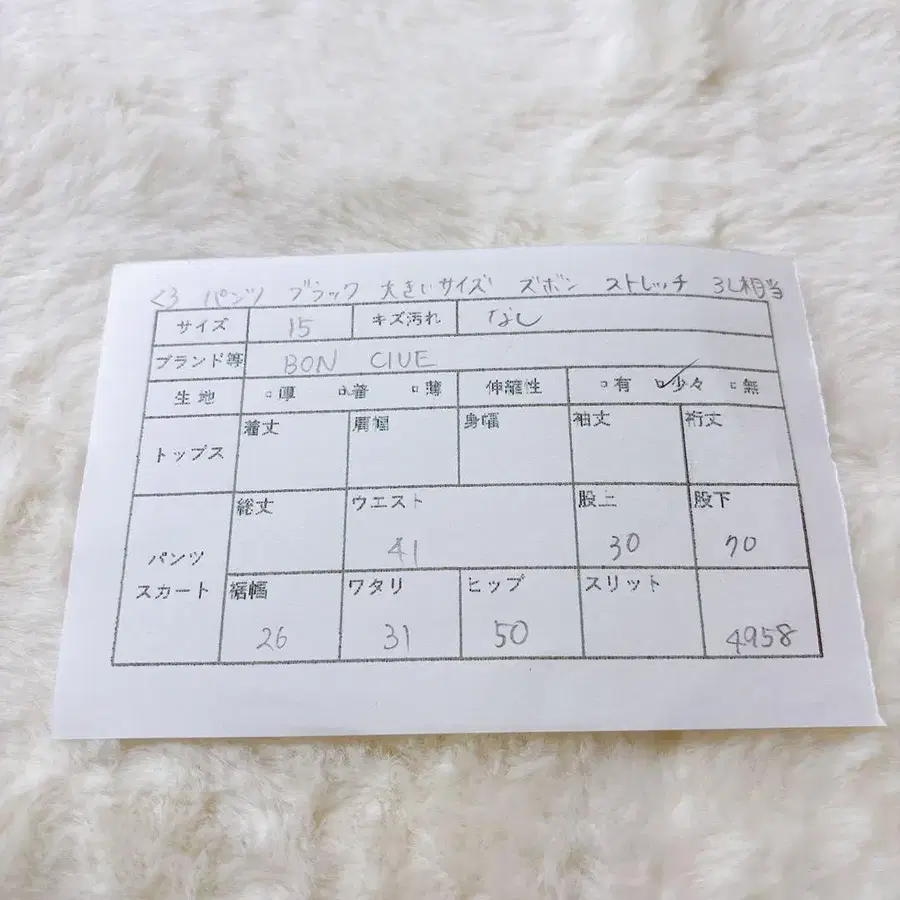 <3 パンツ ブラック 大きいサイズ ズボン ストレッチ 3L相当
サイズ 15 キズ汚れ なし
ブランド等 BON CIUE
生地 □厚 □着 □薄 伸縮性 □有 ☑少々 □無
トップス 着丈 肩幅 身幅 袖丈 裄丈
パンツ スカート
総丈 ウエスト 41 股上 30 股下 70
裾幅 26 ワタリ 31 ヒップ 50 スリット 4958